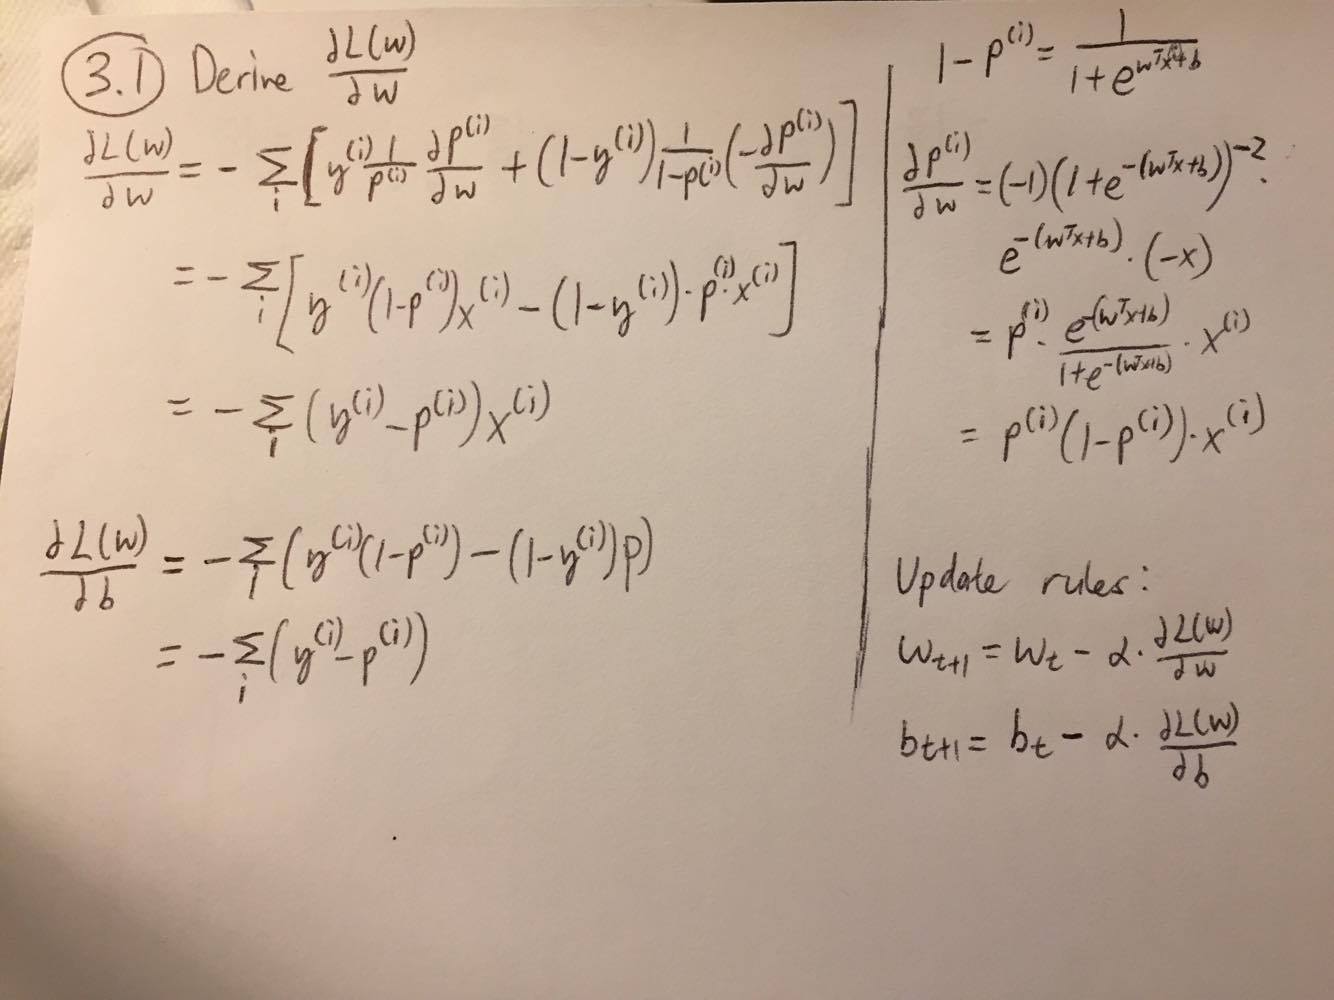 3.1 Derive ∂L(w)/∂w
∂L(w)/∂w = - Σ_i [y^(i) 1/p^(i) ∂p^(i)/∂w + (1-y^(i)) 1/(1-p^(i)) (-∂p^(i)/∂w)]
= - Σ_i [y^(i)(1-p^(i))x^(i) - (1-y^(i))·p^(i)·x^(i)]
= - Σ_i (y^(i) - p^(i)) x^(i)
∂L(w)/∂b = - Σ_i (y^(i)(1-p^(i)) - (1-y^(i))p)
= - Σ_i (y^(i) - p^(i))
1-p^(i) = 1/(1+e^(w^T x^(i)+b))
∂p^(i)/∂w = (-1)(1+e^-(w^T x+b))^-2 ·
e^-(w^T x+b) · (-x)
= p^(i) · e^-(w^T x+b)/(1+e^-(w^T x+b)) · x^(i)
= p^(i)(1-p^(i))·x^(i)
Update rules:
w_t+1 = w_t - α· ∂L(w)/∂w
b_t+1 = b_t - α· ∂L(w)/∂b